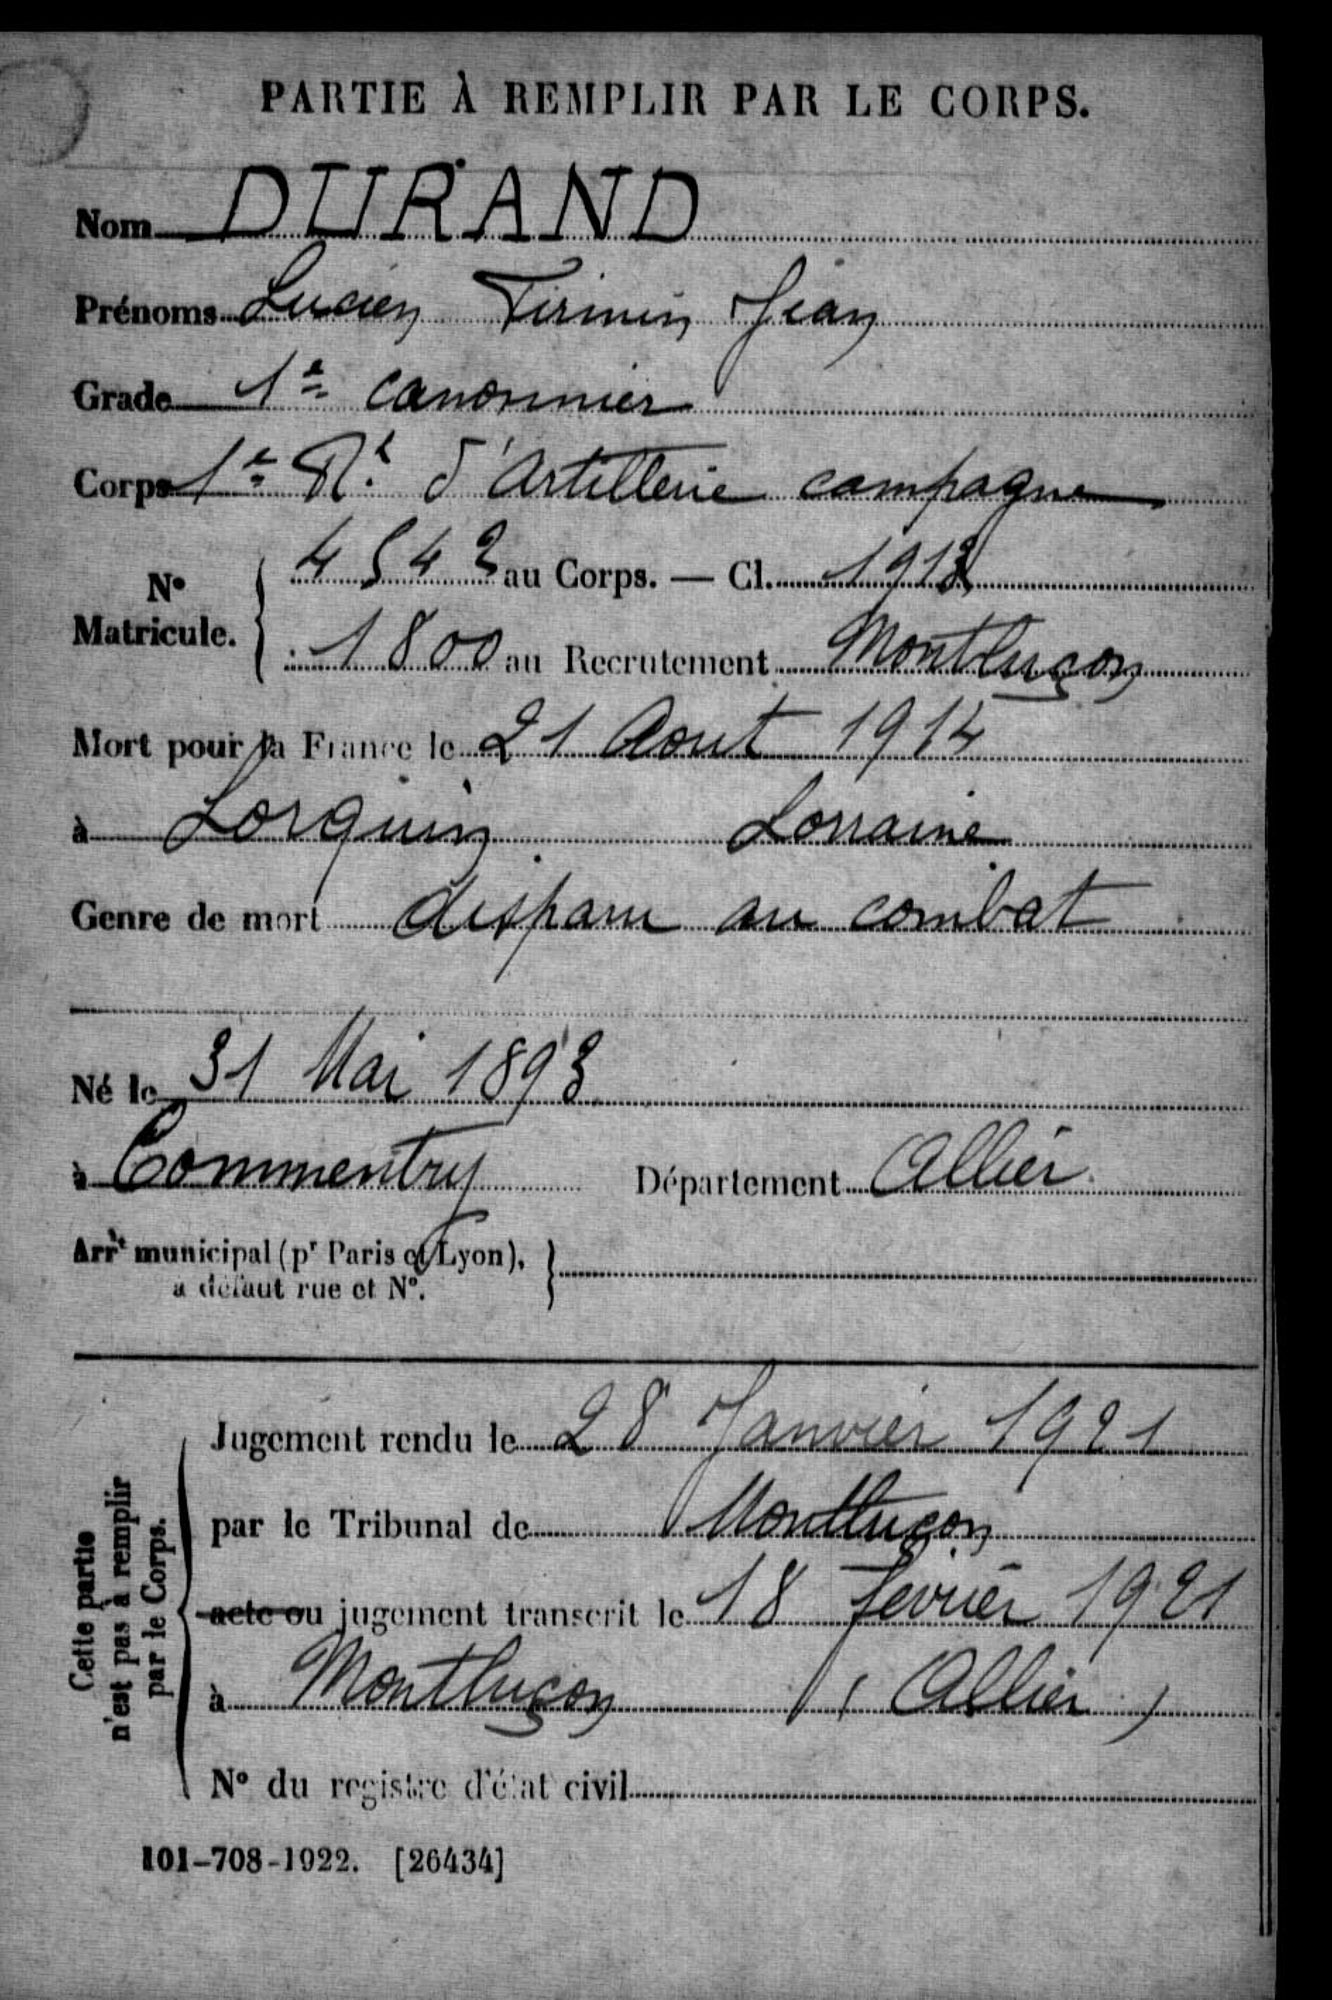 PARTIE À REMPLIR PAR LE CORPS.
Nom DURAND
Prénoms Lucien Firmin Jean
Grade 1e canonnier
Corps 1e Rt d'Artillerie campagne
N° Matricule. 4543 au Corps. — Cl. 1913
1800 au Recrutement Montluçon
Mort pour la France le 21 Aout 1914
à Lorquin Lorraine
Genre de mort disparu au combat
Né le 31 Mai 1893
à Commentry Département Allier
Arrt municipal (pr Paris et Lyon),
à défaut rue et N°.
Cette partie n'est pas à remplir par le Corps.
Jugement rendu le 28 Janvier 1921
par le Tribunal de Montluçon
acte ou jugement transcrit le 18 février 1921
à Montluçon (Allier)
N° du registre d'état civil
101-708-1922. [26434]